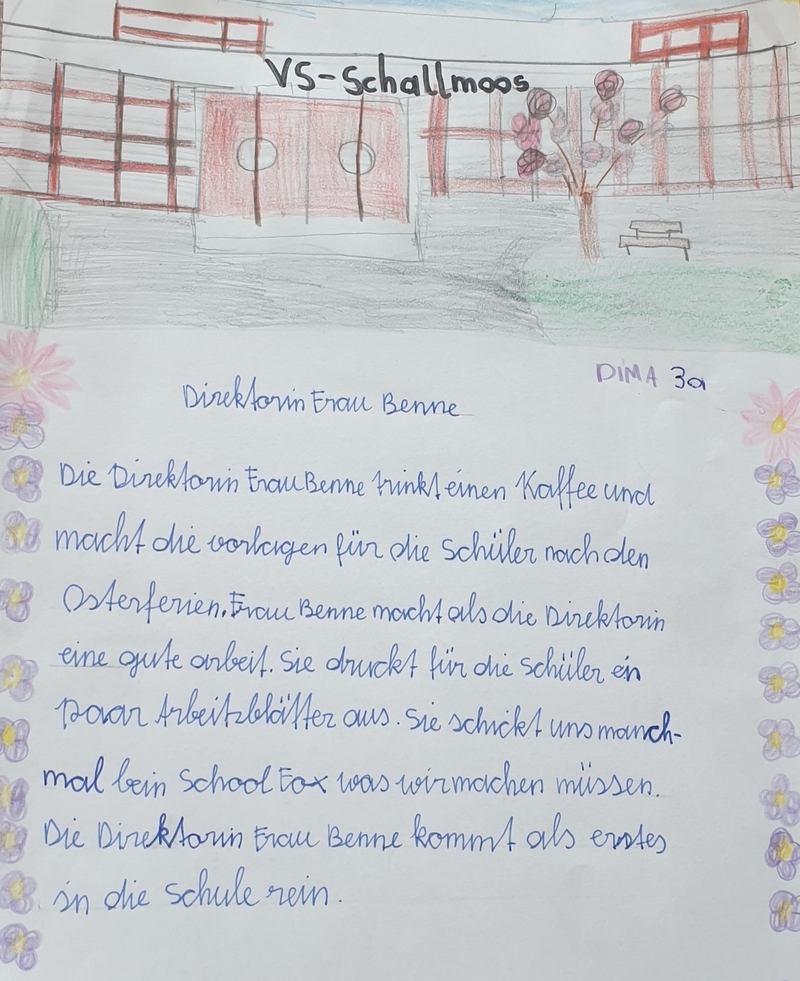 VS-Schallmoos
DIMA 3a
Direktorin Frau Benne
Die Direktorin Frau Benne trinkt einen Kaffee und
macht die vorlagen für die Schüler nach den
Osterferien. Frau Benne macht als die Direktorin
eine gute arbeit. Sie druckt für die Schüler ein
paar Arbeitzblätter aus. Sie schickt uns manch-
mal bein School Fox was wir machen müssen.
Die Direktorin Frau Benne kommt als erstes
in die Schule rein.